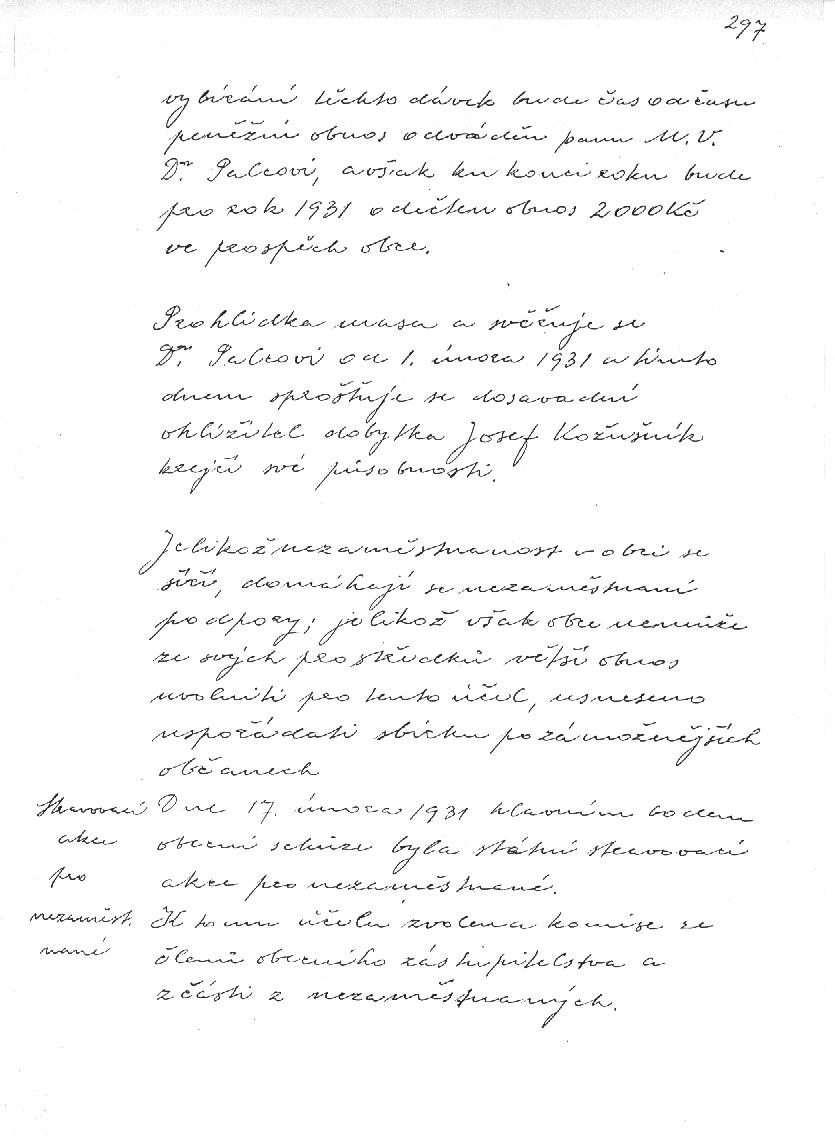 297
vybírání těchto dávek bude čas od času
peněžní obnos odváděn panu M.V.
Dr. Palcovi, avšak ku konci roku bude
pro rok 1931 odečten obnos 2000Kč
ve prospěch obce.
Prohlídka masa a svěřuje se
Dr. Palcovi od 1. února 1931 a tímto
dnem sprošťuje se dosavadní
ohlížitel dobytka Josef Kožušník
krejčí své působnosti.
Jelikož nezaměstnanost v obci se
šíří, domáhají se nezaměstnaní
podpory; jelikož však obec nemůže
ze svých prostředků větší obnos
uvolniti pro tento účel, usneseno
uspořádati sbírku po zámožnějších
občanech
Stravovací
akce
pro
nezaměst.
nané
Dne 17. února 1931 hlavním bodem
obecní schůze byla státní stravovací
akce pro nezaměstnané.
K tomu účelu zvolena komise ze
členů obecního zástupitelstva a
z části z nezaměstnaných.